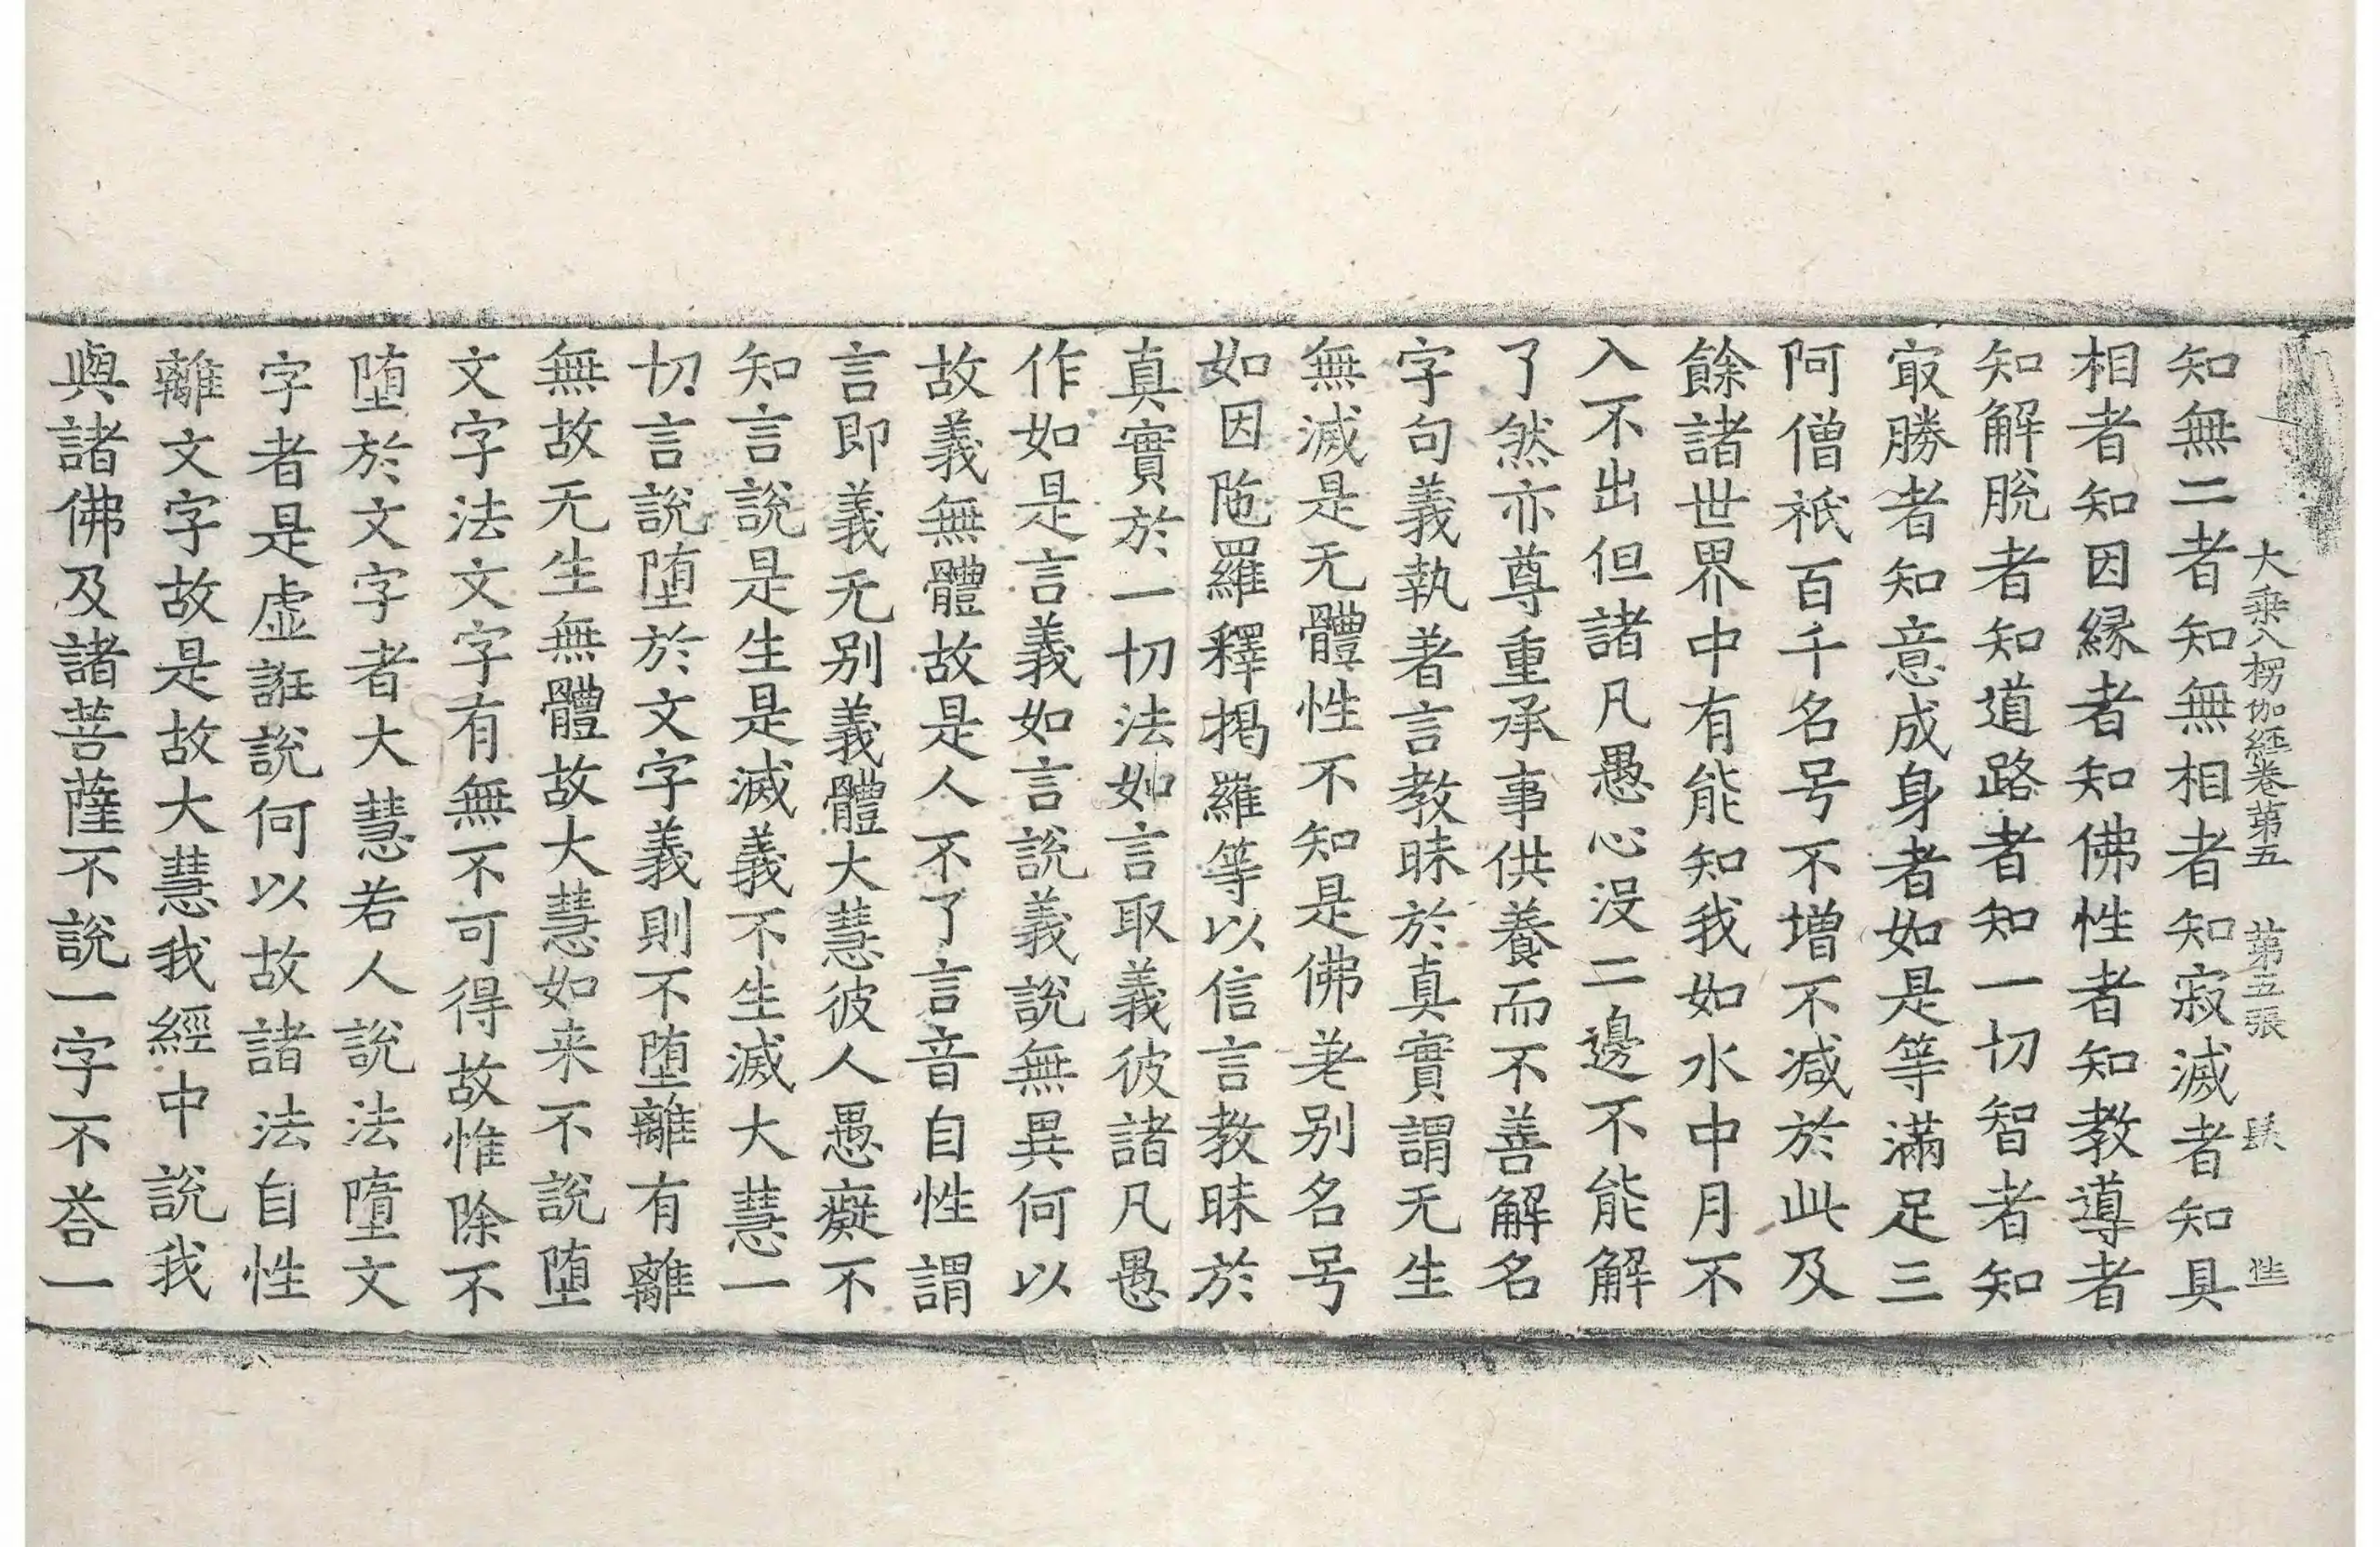 大乗入楞伽經卷第五　第五張
知無二者知無相者知寂滅者知具
相者知因縁者知佛性者知教導者
知解脫者知道路者知一切智者知
㝡勝者知意成身者如是等滿足三
阿僧祇百千名号不增不减於此及
餘諸世界中有能知我如水中月不
入不出但諸凡愚心没二邊不能解
了然亦尊重承事供養而不善解名
字句義執著言教昧於真實謂无生
無滅是无體性不知是佛差别名号
如因陁羅釋揭羅等以信言教昧於
真實於一切法如言取義彼諸凡愚
作如是言義如言說義說無異何以
故義無體故是人不了言音自性謂
言即義无别義體大慧彼人愚癡不
知言說是生是滅義不生滅大慧一
切言說墮於文字義則不墮離有離
無故无生無體故大慧如来不說墮
文字法文字有無不可得故惟除不
墮於文字者大慧若人說法墮文
字者是虛誑說何以故諸法自性
離文字故是故大慧我經中說我
與諸佛及諸菩薩不說一字不荅一